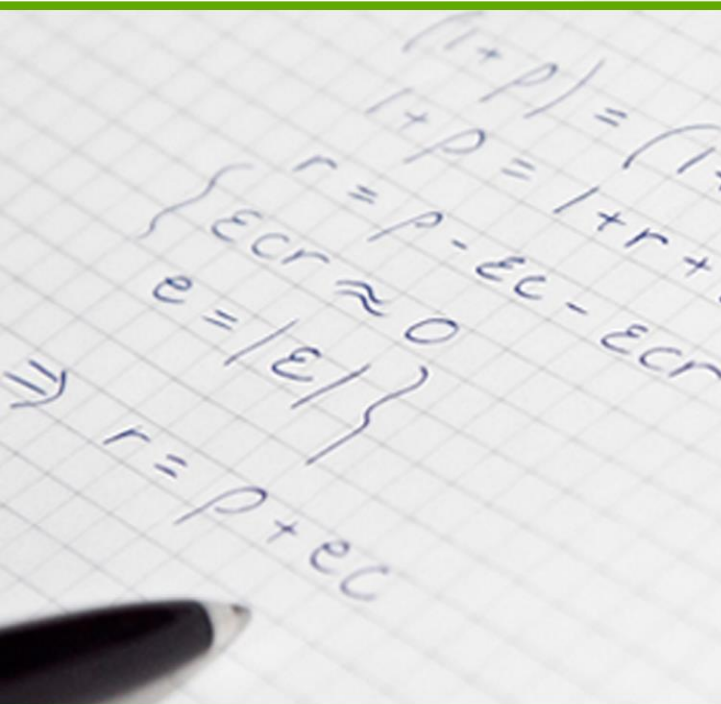 (1+ρ) = (1+
1+ρ = 1+r+
r = ρ - εc - εcr
{ εcr ≈ 0
e = |ε| }
⇒ r = ρ + ec